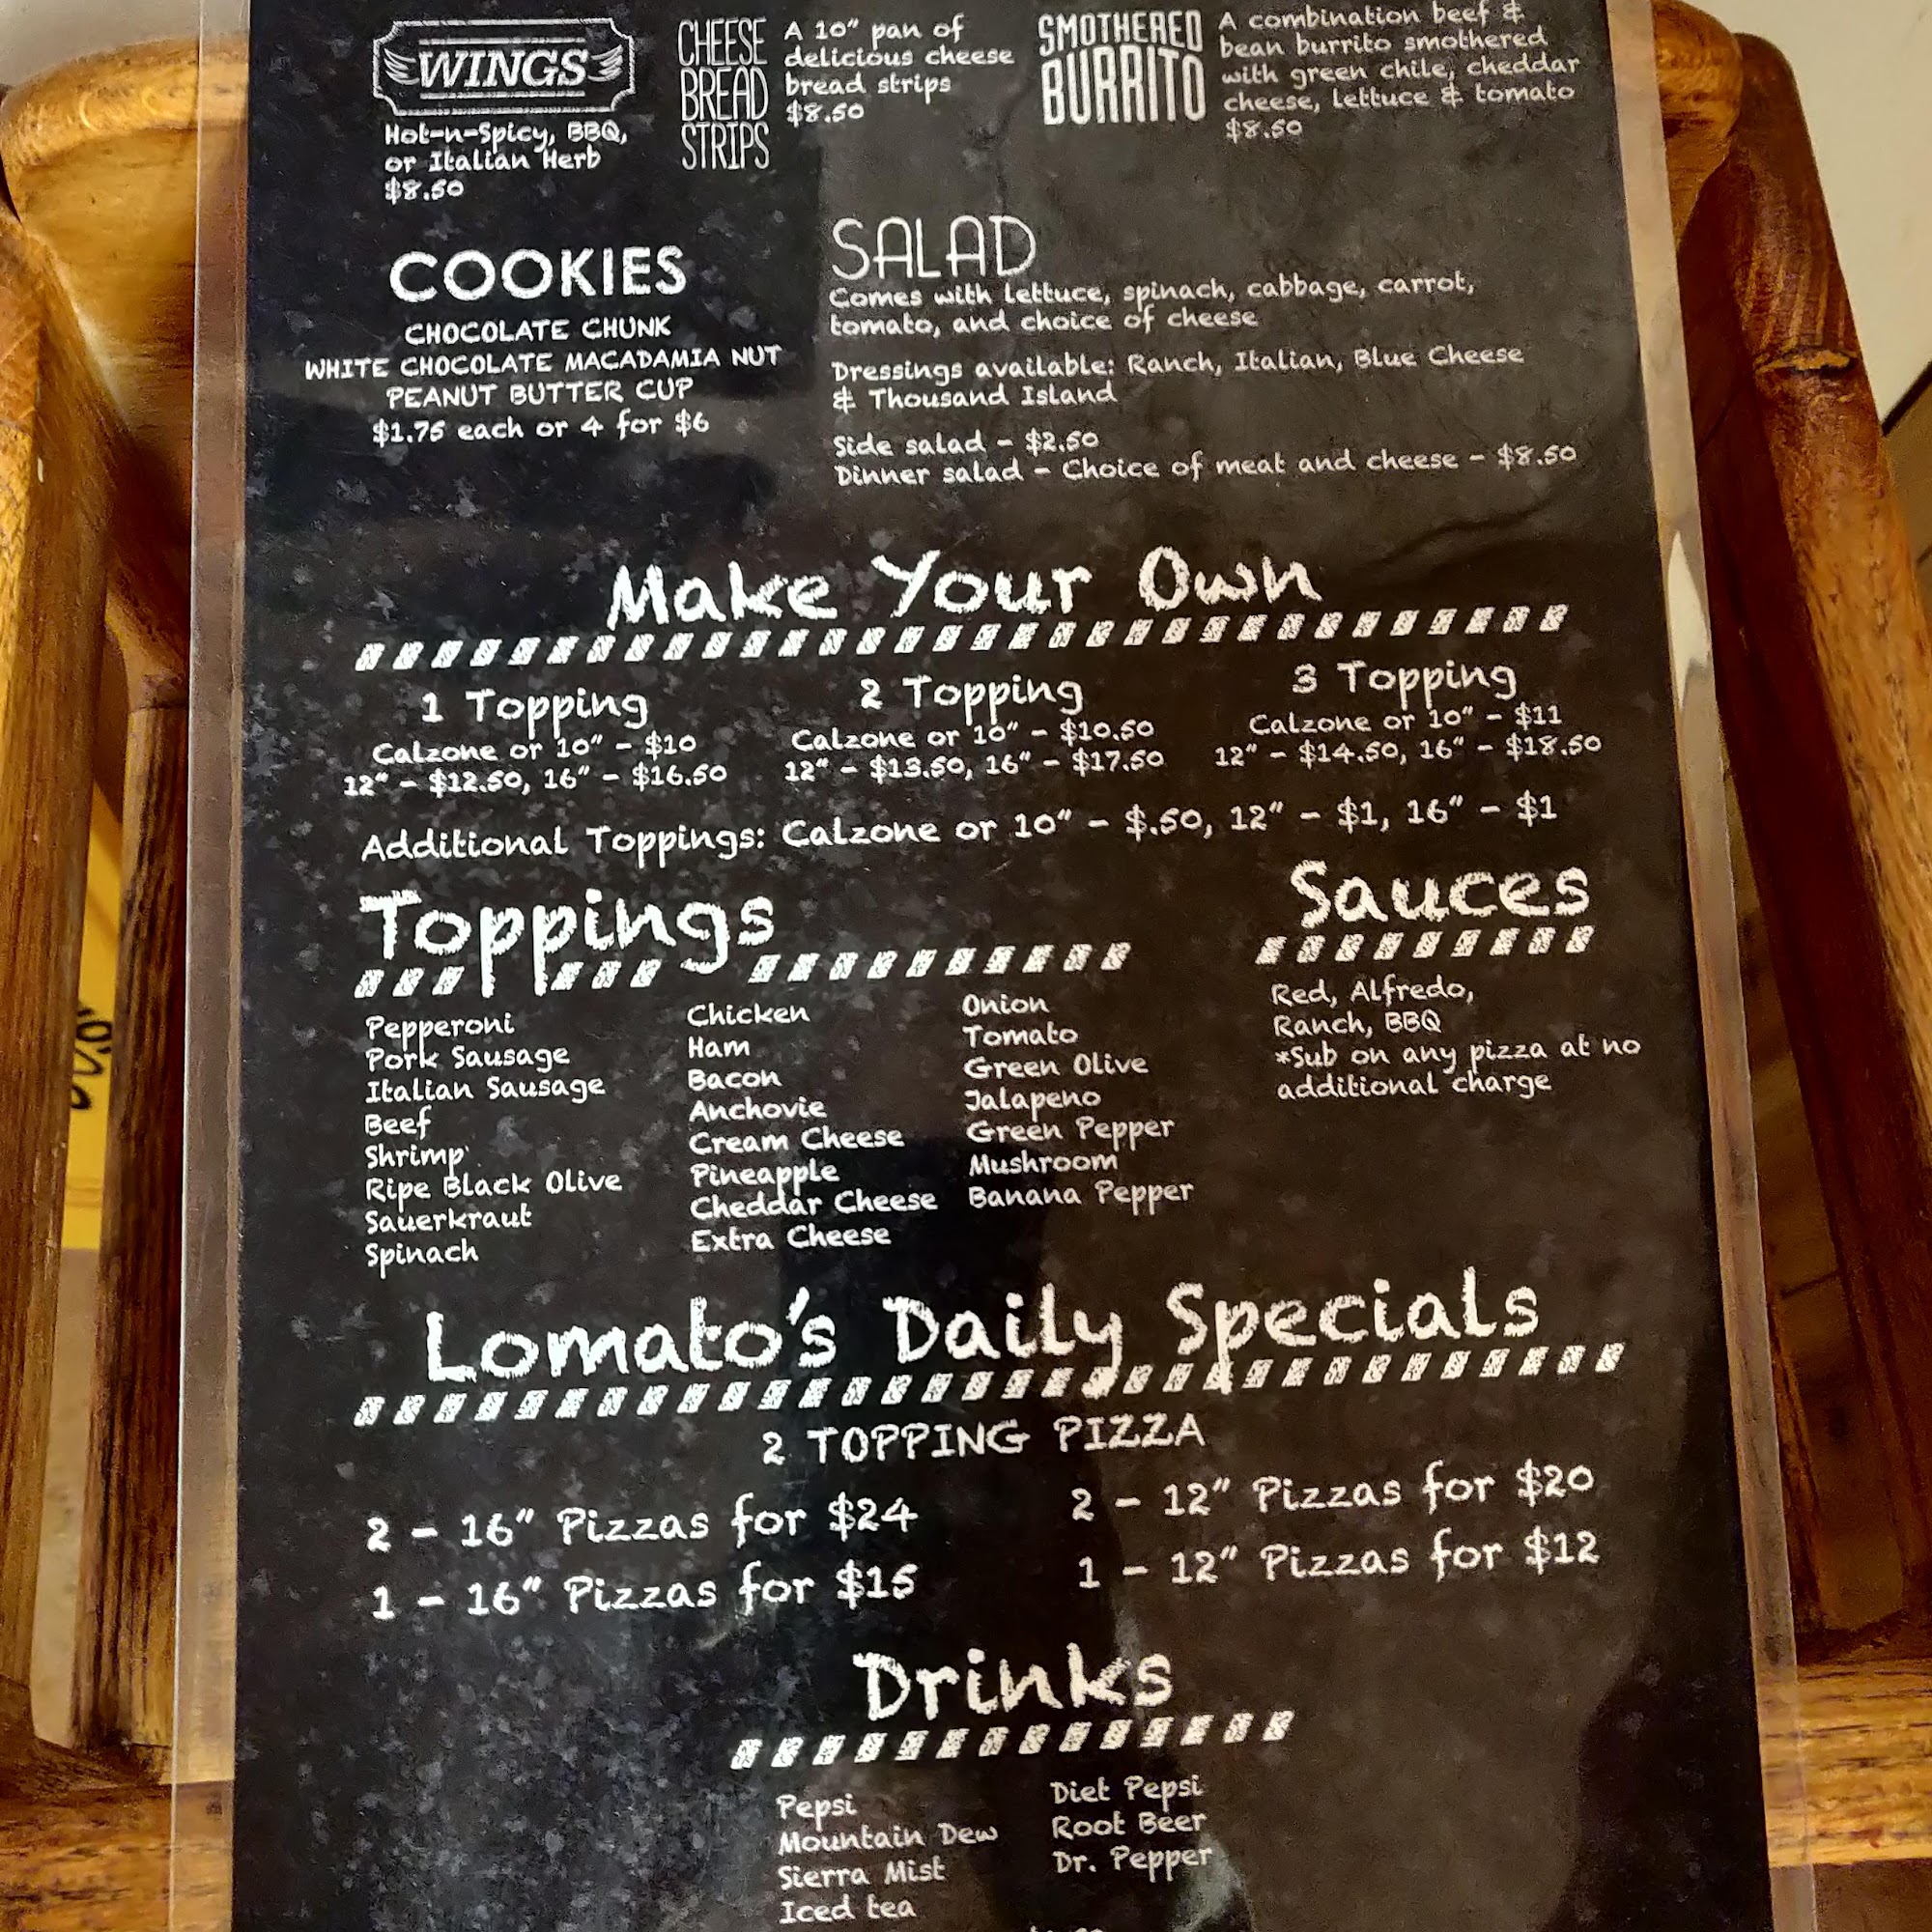 WINGS
Hot-n-Spicy, BBQ,
or Italian Herb
$8.50
CHEESE
BREAD
STRIPS
A 10" pan of
delicious cheese
bread strips
$8.50
SMOTHERED
BURRITO
A combination beef &
bean burrito smothered
with green chile, cheddar
cheese, lettuce & tomato
$8.50
COOKIES
CHOCOLATE CHUNK
WHITE CHOCOLATE MACADAMIA NUT
PEANUT BUTTER CUP
$1.75 each or 4 for $6
SALAD
Comes with lettuce, spinach, cabbage, carrot,
tomato, and choice of cheese
Dressings available: Ranch, Italian, Blue Cheese
& Thousand Island
Side salad - $2.50
Dinner salad - Choice of meat and cheese - $8.50
Make Your Own
1 Topping
Calzone or 10" - $10
12" - $12.50, 16" - $16.50
2 Topping
Calzone or 10" - $10.50
12" - $13.50, 16" - $17.50
3 Topping
Calzone or 10" - $11
12" - $14.50, 16" - $18.50
Additional Toppings: Calzone or 10" - $.50, 12" - $1, 16" - $1
Toppings
Pepperoni
Pork Sausage
Italian Sausage
Beef
Shrimp
Ripe Black Olive
Sauerkraut
Spinach
Chicken
Ham
Bacon
Anchovie
Cream Cheese
Pineapple
Cheddar Cheese
Extra Cheese
Onion
Tomato
Green Olive
Jalapeno
Green Pepper
Mushroom
Banana Pepper
Sauces
Red, Alfredo,
Ranch, BBQ
*Sub on any pizza at no
additional charge
Lomato's Daily Specials
2 TOPPING PIZZA
2 - 16" Pizzas for $24
1 - 16" Pizzas for $15
2 - 12" Pizzas for $20
1 - 12" Pizzas for $12
Drinks
Pepsi
Mountain Dew
Sierra Mist
Iced tea
Diet Pepsi
Root Beer
Dr. Pepper